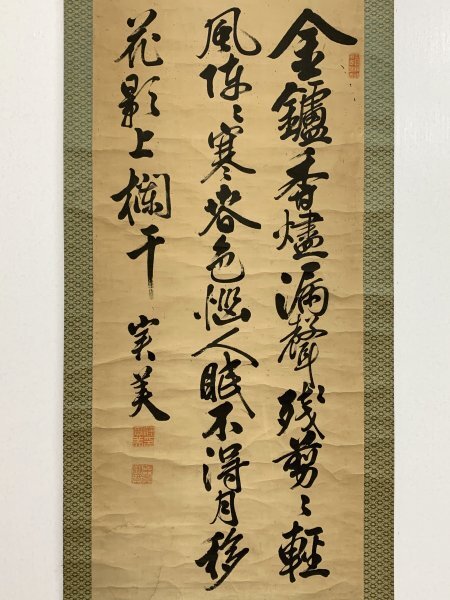 金鑪香燼漏聲残剪〻輕
風陣〻寒春色惱人眠不得月移
花影上欄干
実美